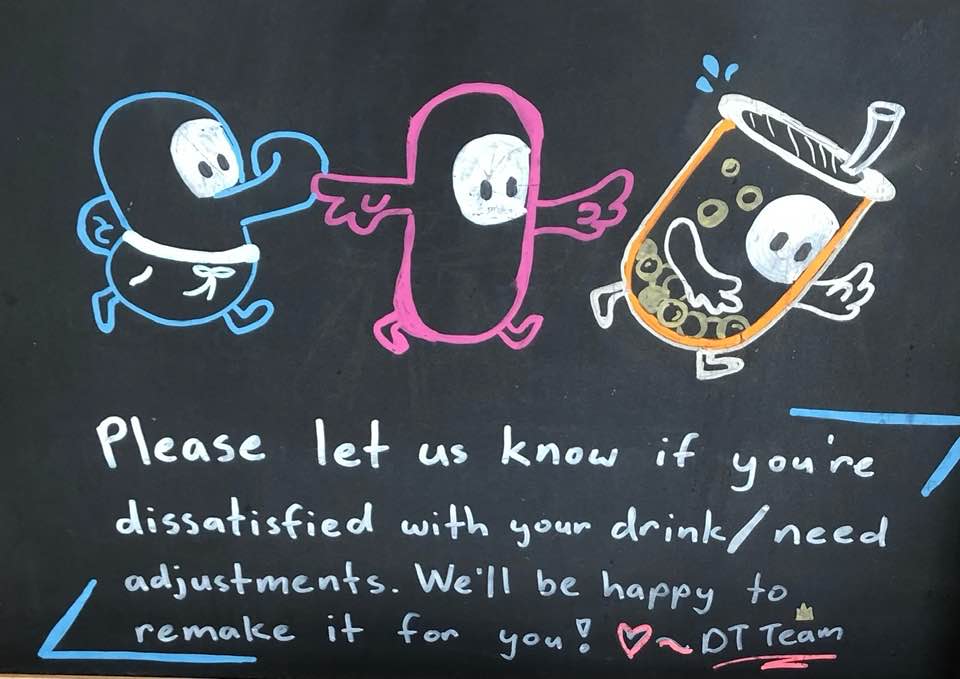 Please let us know if you're
dissatisfied with your drink/need
adjustments. We'll be happy to
remake it for you! ♡~ DT Team